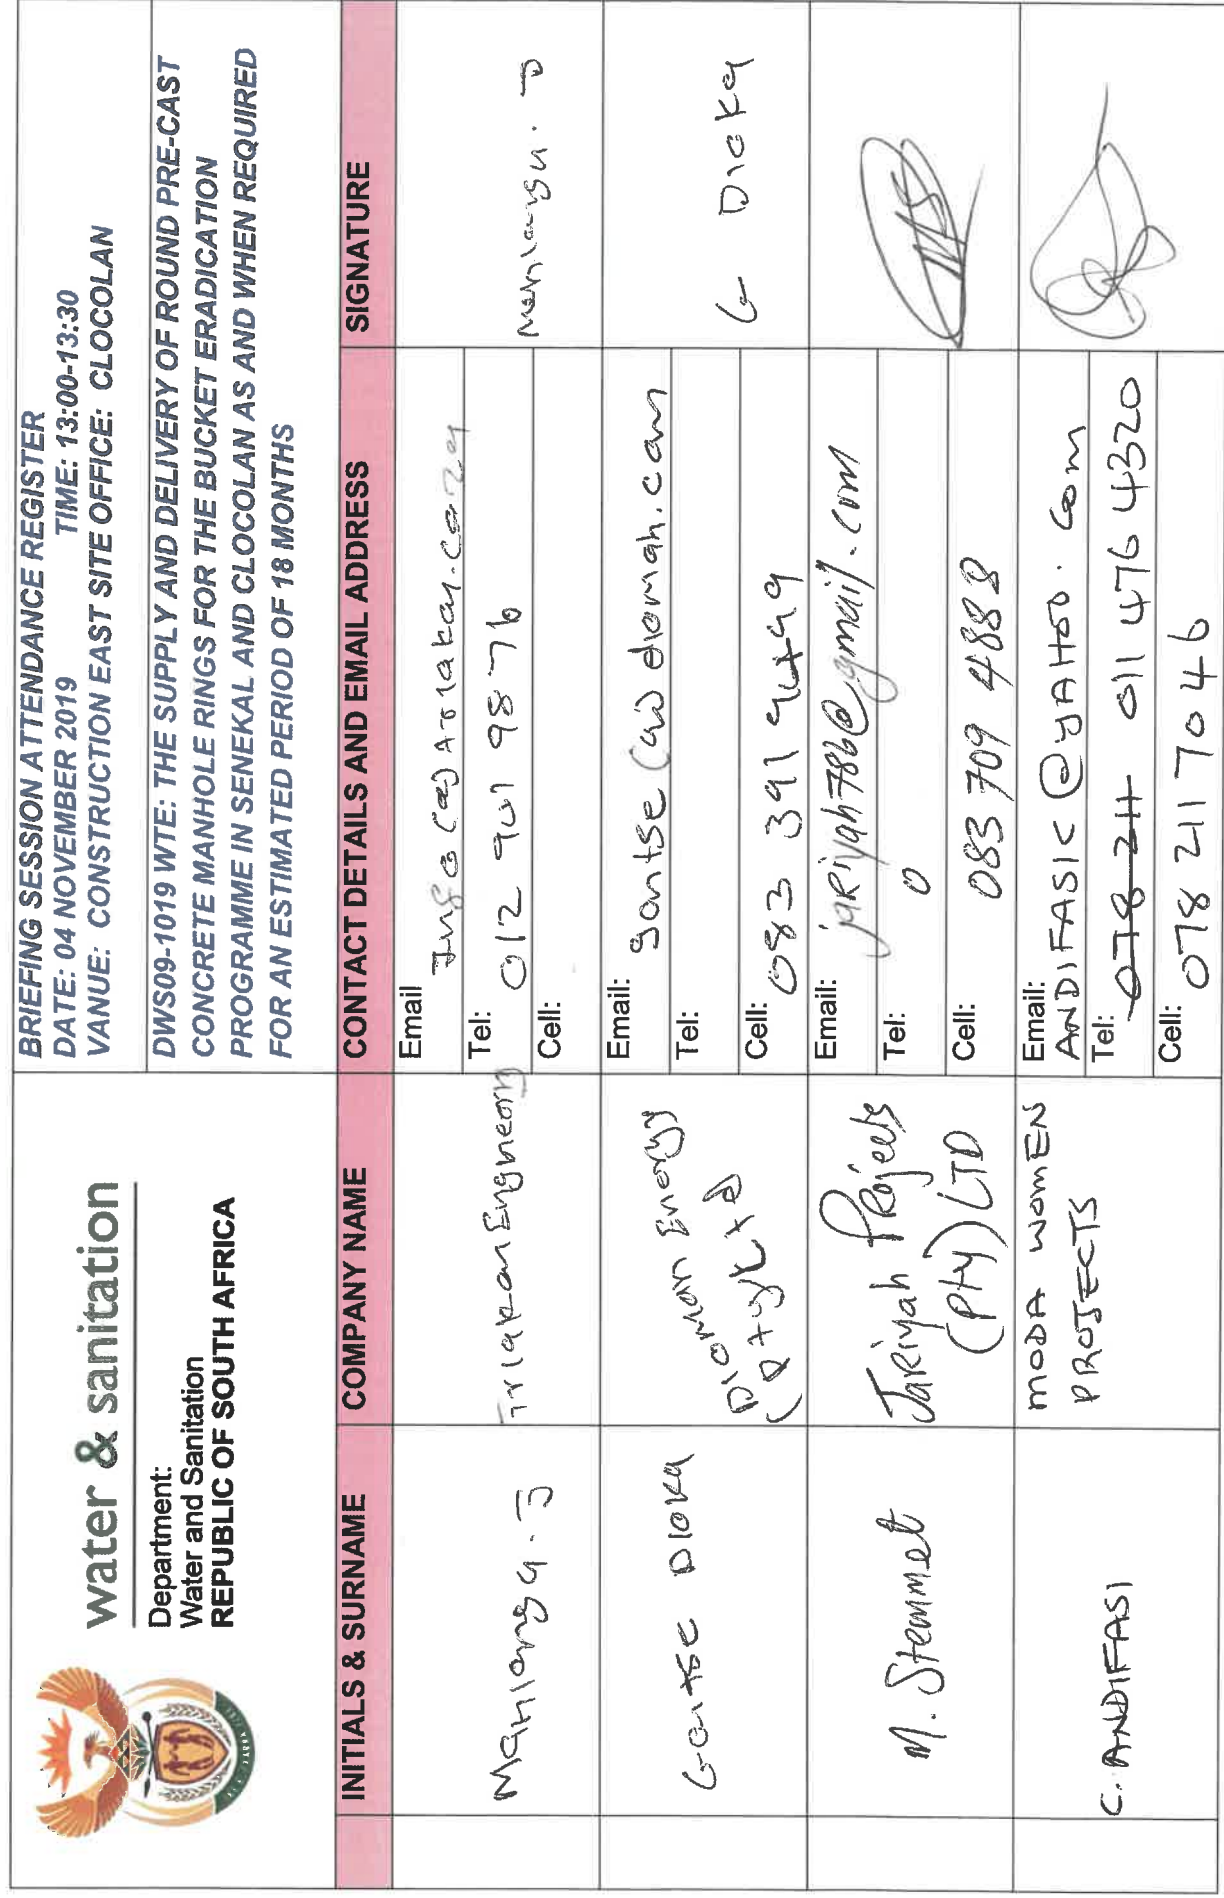 water & sanitation
Department:
Water and Sanitation
REPUBLIC OF SOUTH AFRICA
BRIEFING SESSION ATTENDANCE REGISTER
DATE: 04 NOVEMBER 2019 TIME: 13:00-13:30
VANUE: CONSTRUCTION EAST SITE OFFICE: CLOCOLAN
DWS09-1019 WTE: THE SUPPLY AND DELIVERY OF ROUND PRE-CAST
CONCRETE MANHOLE RINGS FOR THE BUCKET ERADICATION
PROGRAMME IN SENEKAL AND CLOCOLAN AS AND WHEN REQUIRED
FOR AN ESTIMATED PERIOD OF 18 MONTHS
INITIALS & SURNAME COMPANY NAME CONTACT DETAILS AND EMAIL ADDRESS SIGNATURE
Mahlangu. J
Email
Tel: 012 901 9876
Cell:
Mahlangu. J
Gontse Dioka
Dioman Energy
(Pty) Ltd
Email: gontse@diomah.com
Tel:
Cell: 083 391 9449
G Dioka
M. Stemmet
Jariyah Projects
(Pty) LTD
Email: jariyah786@gmail.com
Tel: 0
Cell: 083 709 4888
C. ANDIFASI
MODA WOMEN
PROJECTS
Email: ANDIFASIC@YAHOO.COM
Tel: 078 211 011 476 4320
Cell: 078 211 7046